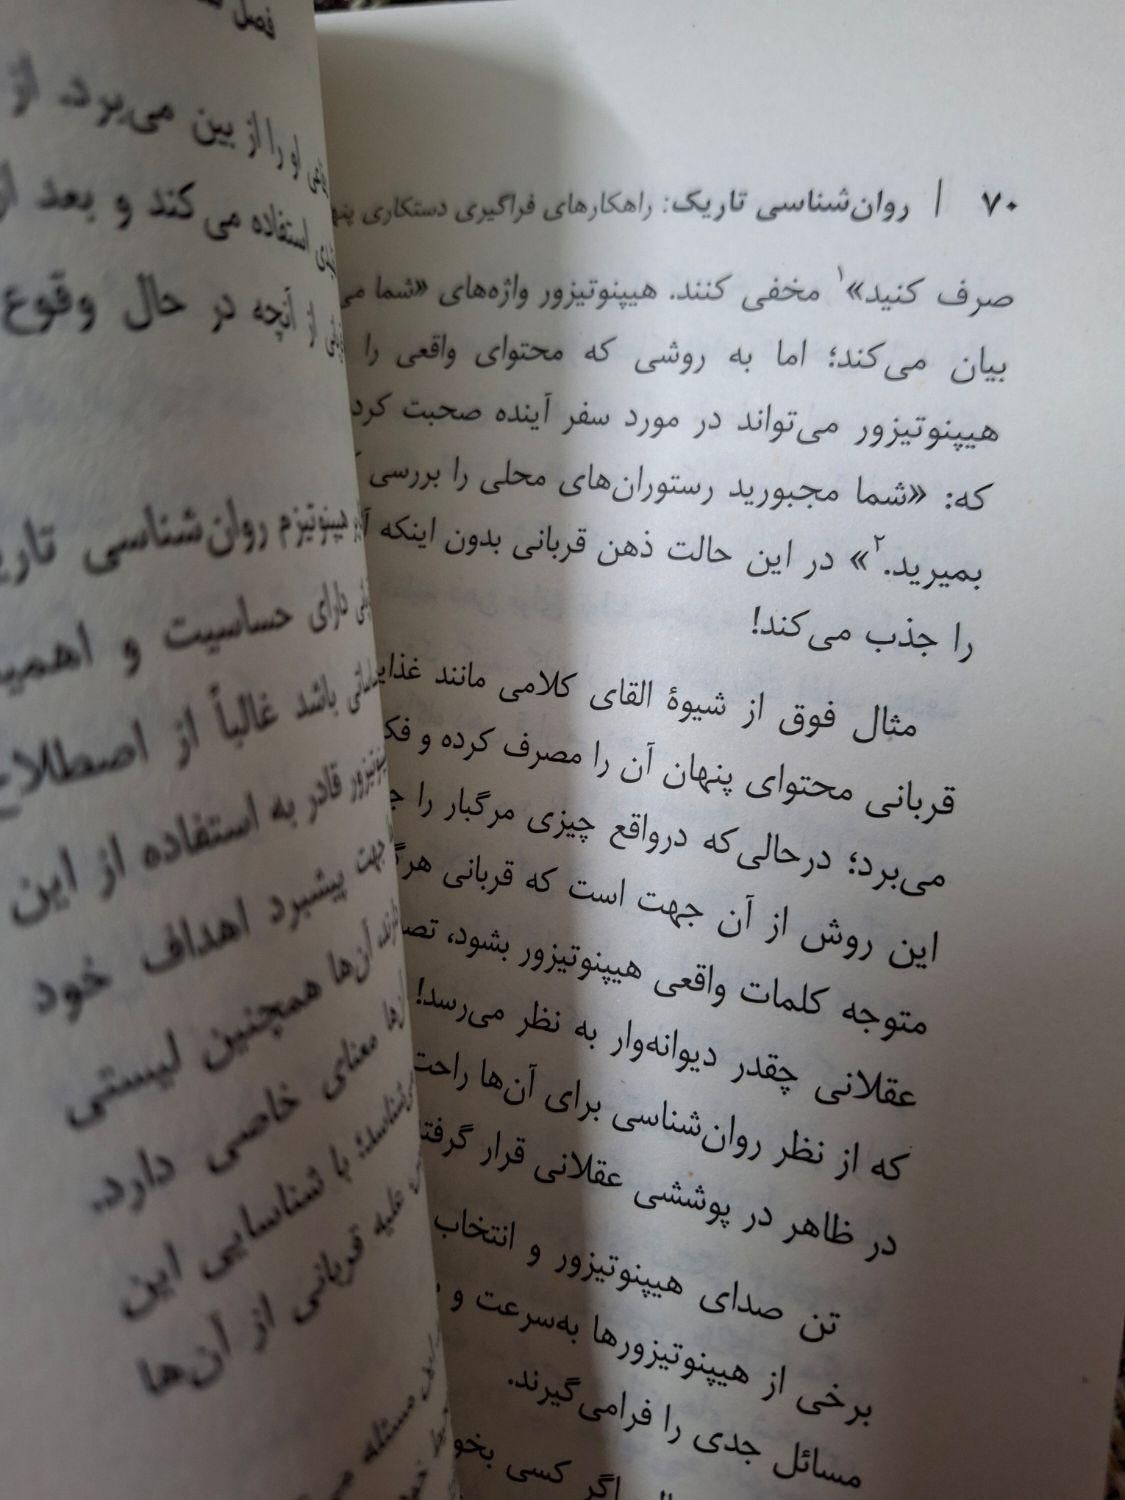 ۷۰ | روان‌شناسی تاریک: راهکارهای فراگیری دستکاری
صرف کنید»۱ مخفی کنند. هیپنوتیزور واژه‌های «شما
بیان می‌کند؛ اما به روشی که محتوای واقعی را
هیپنوتیزور می‌تواند در مورد سفر آینده صحبت
که: «شما مجبورید رستوران‌های محلی را بررسی
بمیرید.۲» در این حالت ذهن قربانی بدون اینکه
را جذب می‌کند!
مثال فوق از شیوهٔ القای کلامی مانند
قربانی محتوای پنهان آن را مصرف کرده و
می‌برد؛ درحالی‌که درواقع چیزی مرگبار را
این روش از آن جهت است که قربانی
متوجه کلمات واقعی هیپنوتیزور بشود،
عقلانی چقدر دیوانه‌وار به نظر می‌رسد!
که از نظر روان‌شناسی برای آن‌ها
در ظاهر در پوششی عقلانی قرار
تن صدای هیپنوتیزور و انتخاب
برخی از هیپنوتیزورها به‌سرعت و
مسائل جدی را فرامی‌گیرند.
اگر کسی
فصل
او را از بین می‌برد. از
استفاده می‌کند و بعد از
از آنچه در حال وقوع
هیپنوتیزم روان‌شناسی
دارای حساسیت و
باشد غالباً از
قادر به استفاده از این
جهت پیشبرد اهداف خود
آن‌ها همچنین لیستی
معنای خاصی دارد.
با شناسایی این
علیه قربانی از آن‌ها
مسئله